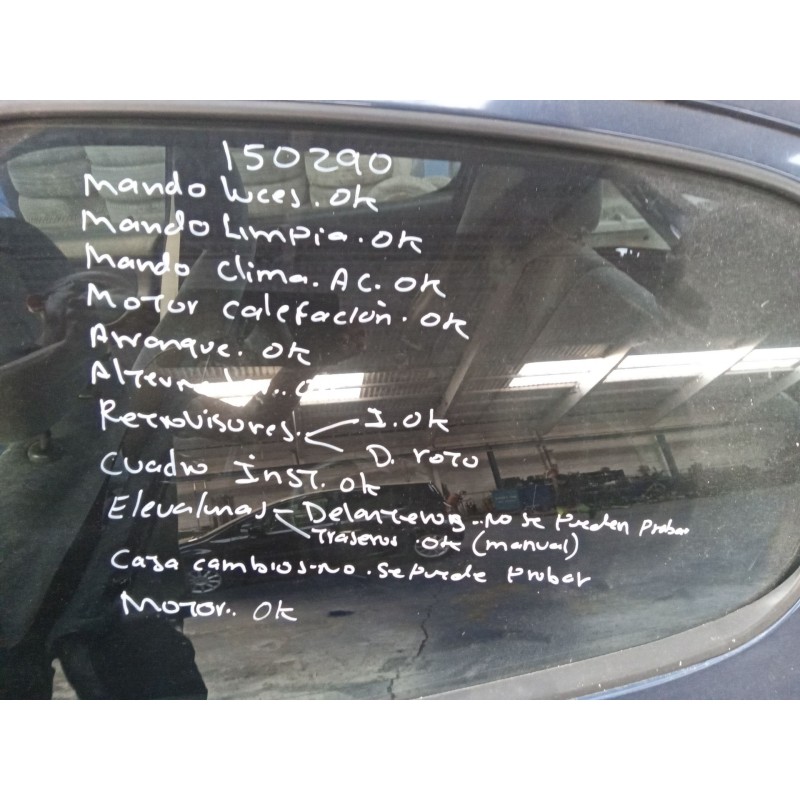 150290
Mando luces. OK
Mando Limpia. OK
Mando clima. AC. OK
Motor calefacion. OK
Arranque. OK
Retrovisores. I. OK
D. roto
Cuadro Inst. OK
Elevalunas Delanteros..no se Pueden Probar
Traseros. OK (manual)
Caja cambios-no. se Puede Probar
Motor.. OK